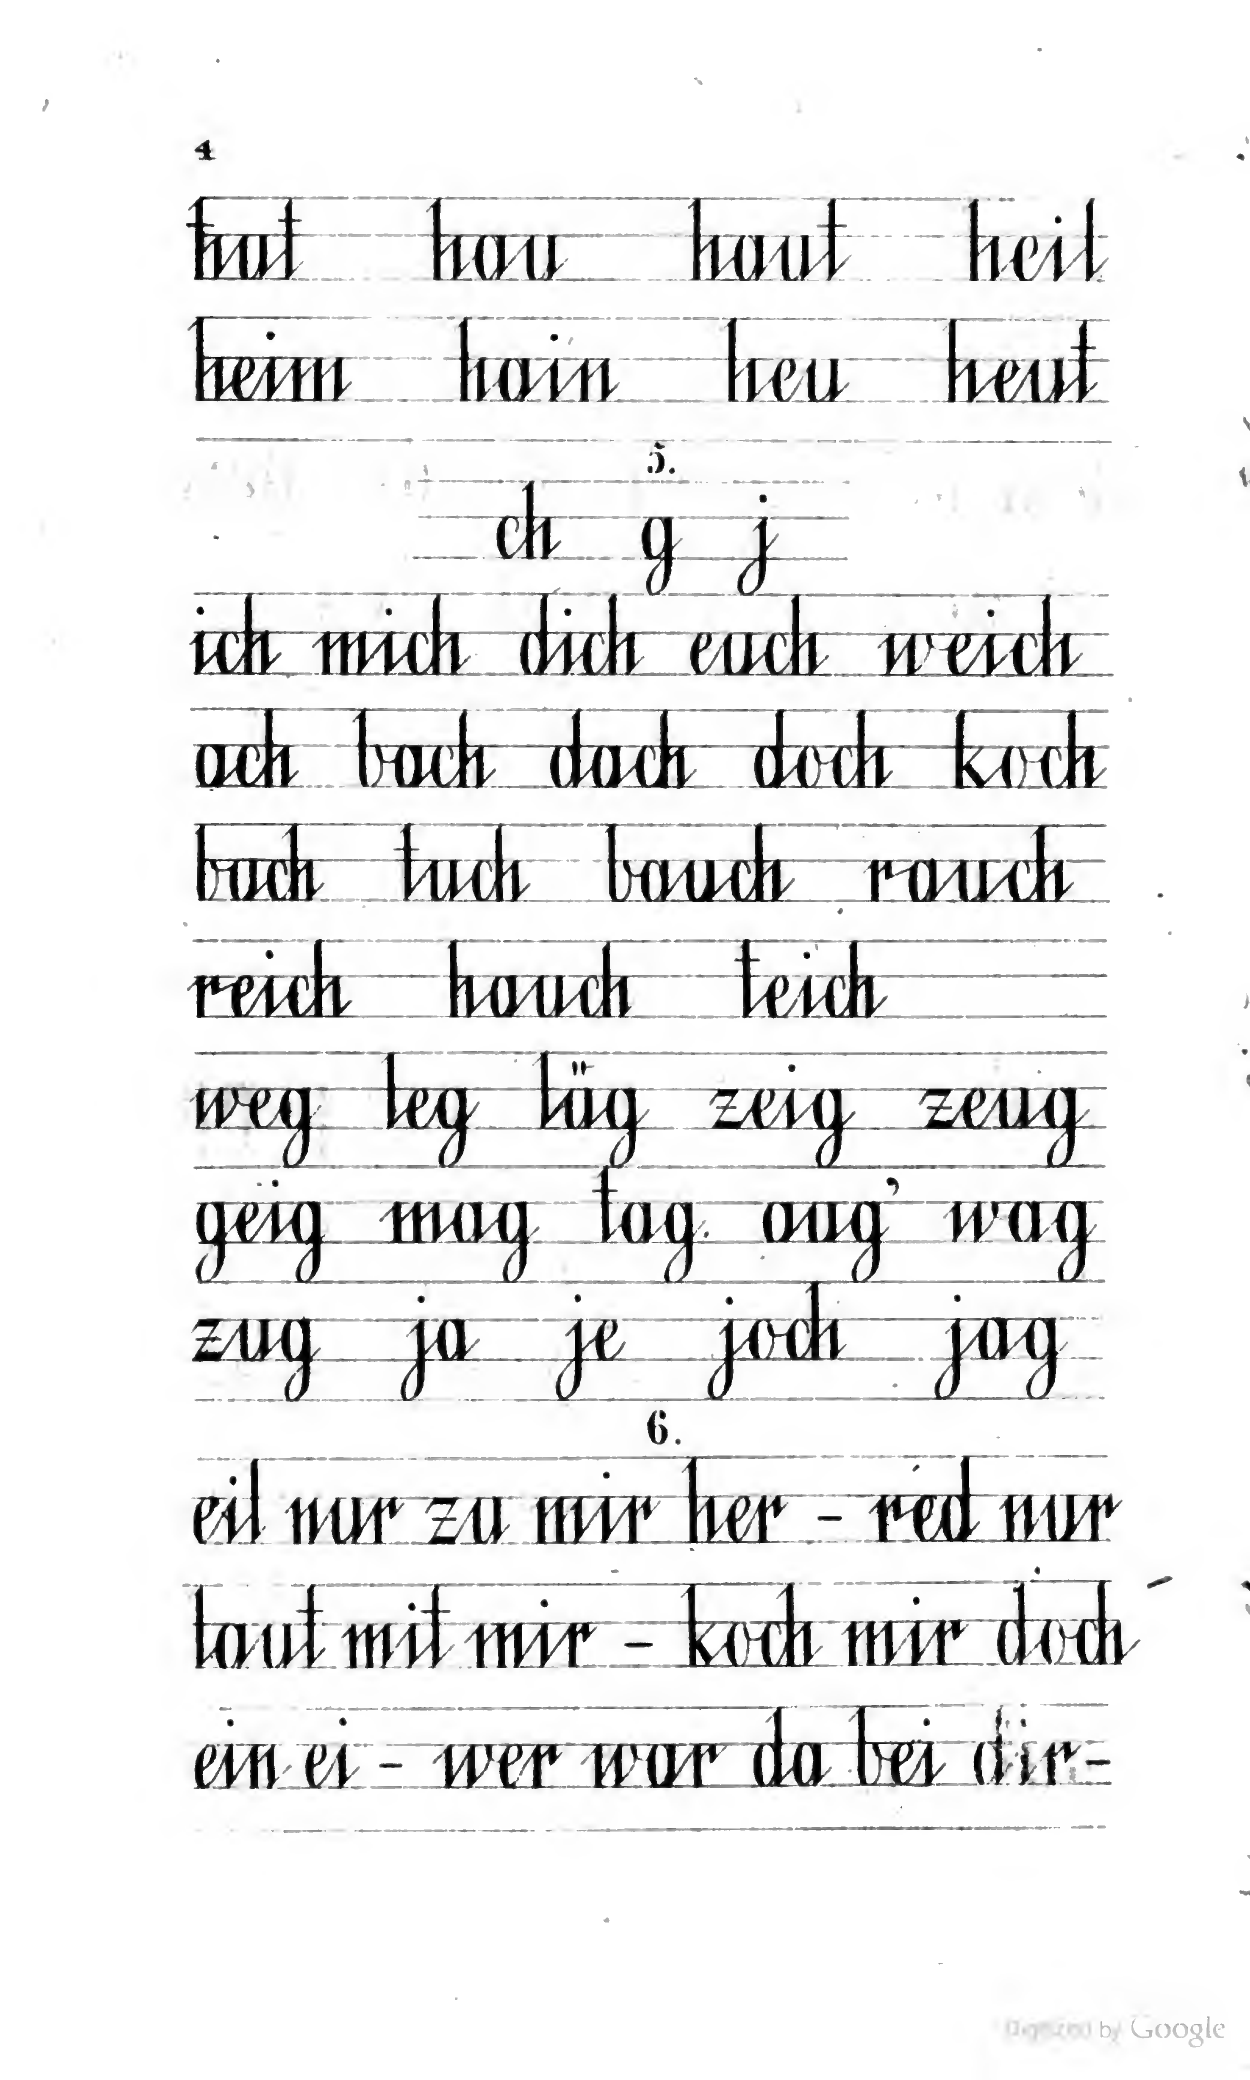 4
hut hau haut heil
heim hain heu heut
5.
ch g j
ich mich dich euch weich
ach bach dach doch koch
buch tuch bauch rauch
reich hauch teich
weg leg lüg zeig zeug
geig mag tag aug’ wag
zug ja je joch jag
6.
eil nur zu mir her - red nur
laut mit mir - koch mir doch
ein ei - wer war da bei dir -
Digitized by Google